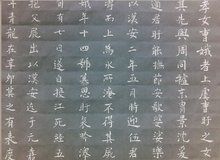 孝女曹娥者上虞曹盱之女
其先與周同祖末胄景沈爰
適居盱能撫節安歌婆娑樂
以漢安二年五月時迎伍君
而上為水所淹不得其屍
娥年十四號慕思盱哀吟澤
有七日遂自投江死經五
父屍出以漢安迄于元嘉
青龍在辛卯莫之有表度